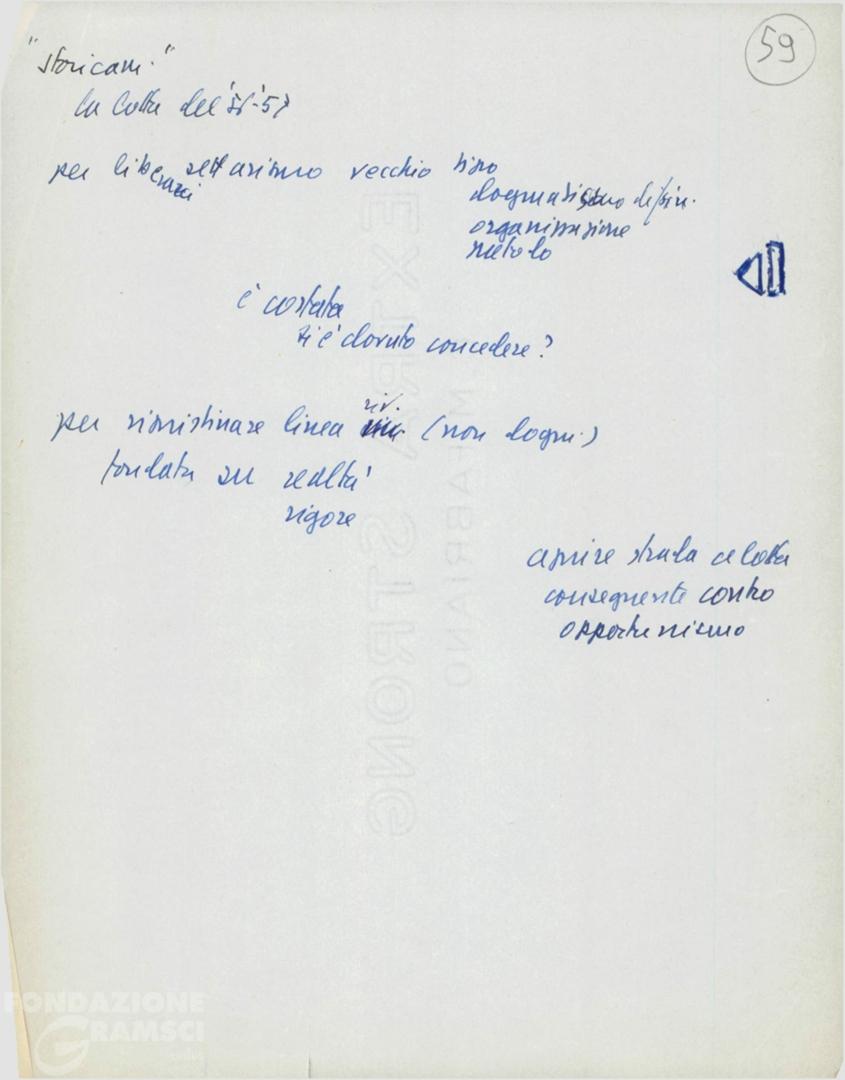 59
"storicam."
la lotta del '56-'57
per liberarci settarismo vecchio tipo
dogmatismo
organizzazione
metodo
è costata
si è dovuto concedere?
per ripristinare linea riv. (non dogm.)
fondata su realtà
rigore
aprire strada a lotta
conseguente contro
opportunismo
EXTRA STRONG
FABRIANO
FONDAZIONE
GRAMSCI